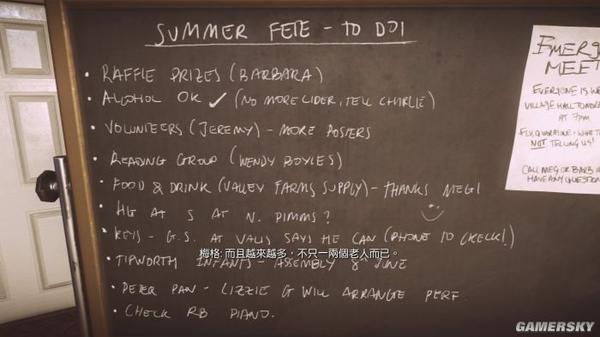 SUMMER FETE - TO DO!
• RAFFLE PRIZES (BARBARA)
• ALCOHOL OK ✓ (NO MORE CIDER, TELL CHARLIE)
• VOLUNTEERS (JEREMY) - MORE POSTERS
• READING GROUP (WENDY BOYLES)
• FOOD & DRINK (VALLEY FARMS SUPPLY) - THANKS MEG!
• HG AT S AT N. PIMMS?
• KEYS - G.S. AT VALIS SAYS HE CAN (PHONE TO CHECK!)
梅格: 而且越來越多，不只一兩個老人而已。
• TIPWORTH INFANTS - ASSEMBLY 8TH JUNE
• PETER PAN - LIZZIE G WILL ARRANGE PERF.
• CHECK RB PIANO.
EMERG
MEET
EVERYONE IS WE
VILLAGE HALL TOMORR
AT 7PM
NOT TELLING US!
CALL MEG OR BARB
HAVE ANY QUESTION
GAMERSKY